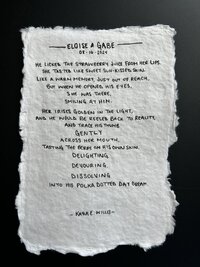 ELOISE & GABE
08-16-2024
HE LICKED THE STRAWBERRY JUICE FROM HER LIPS.
SHE TASTED LIKE SWEET SUN-KISSED SKIN.
LIKE A WARM MEMORY, JUST OUT OF REACH.
BUT WHEN HE OPENED HIS EYES,
SHE WAS THERE,
SMILING AT HIM.
HER IRISES GOLDEN IN THE LIGHT,
AND HE WOULD BE REELED BACK TO REALITY
AND TRACE HIS THUMB
GENTLY
ACROSS HER MOUTH,
TASTING THE BERRY ON HIS OWN SKIN.
DELIGHTING,
DEVOURING,
DISSOLVING
INTO HIS POLKA DOTTED DAY DREAM.
- KARA E. WILLIS -